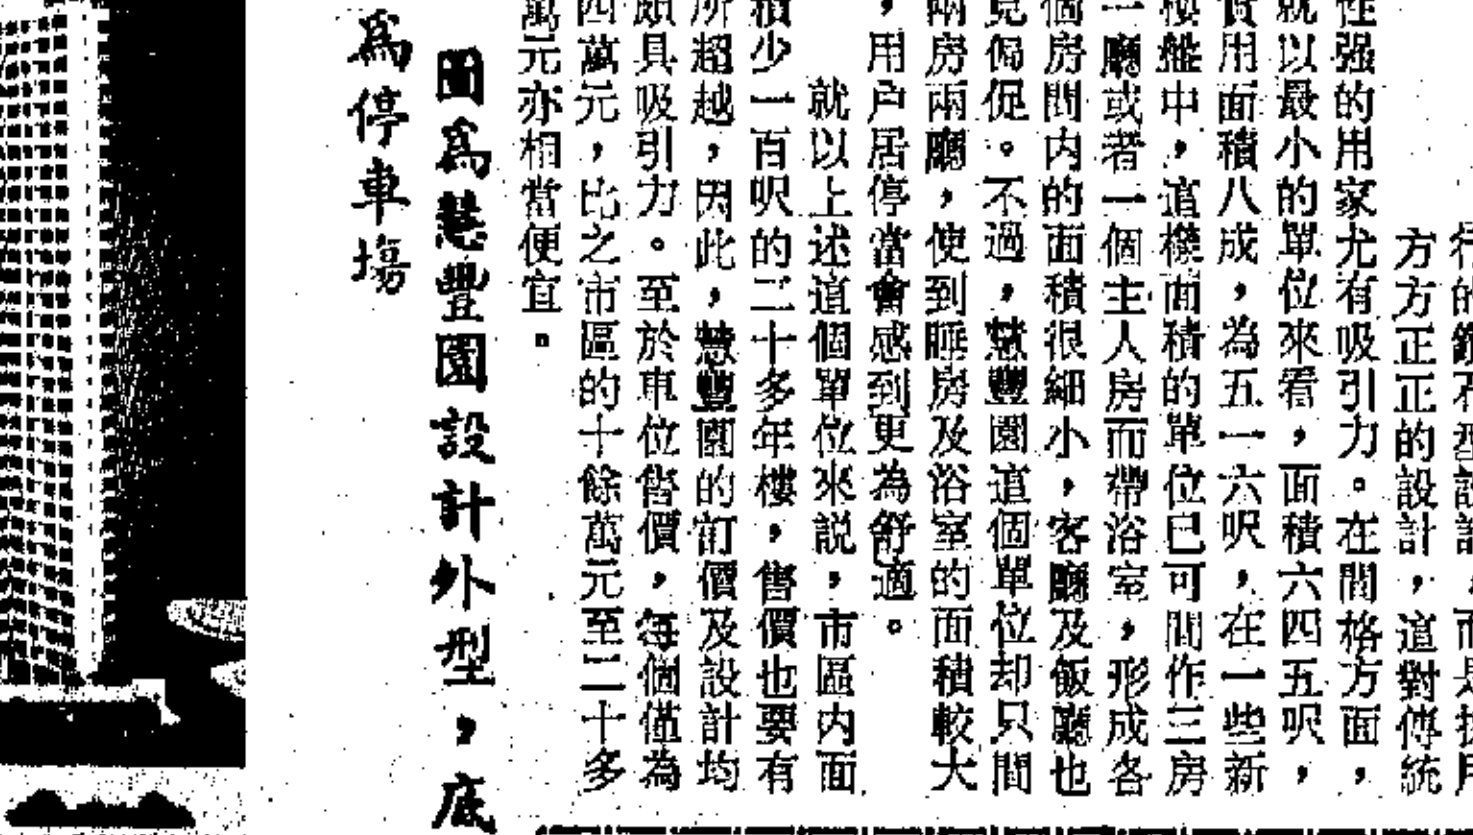 行的鑽石型設計，而是採用
方方正正的設計，這對傳統
性强的用家尤有吸引力。在間格方面，
就以最小的單位來看，面積六四五呎，
實用面積八成，為五一六呎，在一些新
樓盤中，這樣面積的單位已可間作三房
一廳或者一個主人房而帶浴室，形成各
個房間内的面積很細小，客廳及飯廳也
見侷促。不過，慧豐園這個單位却只間
兩房兩廳，使到睡房及浴室的面積較大
，用户居停當會感到更為舒適。
就以上述這個單位來説，市區内面
積少一百呎的二十多年樓，售價也要有
所超越，因此，慧豐園的訂價及設計均
頗具吸引力。至於車位售價，每個僅為
四萬元，比之市區的十餘萬元至二十多
萬元亦相當便宜。
圖爲慧豐園設計外型，底
爲停車場